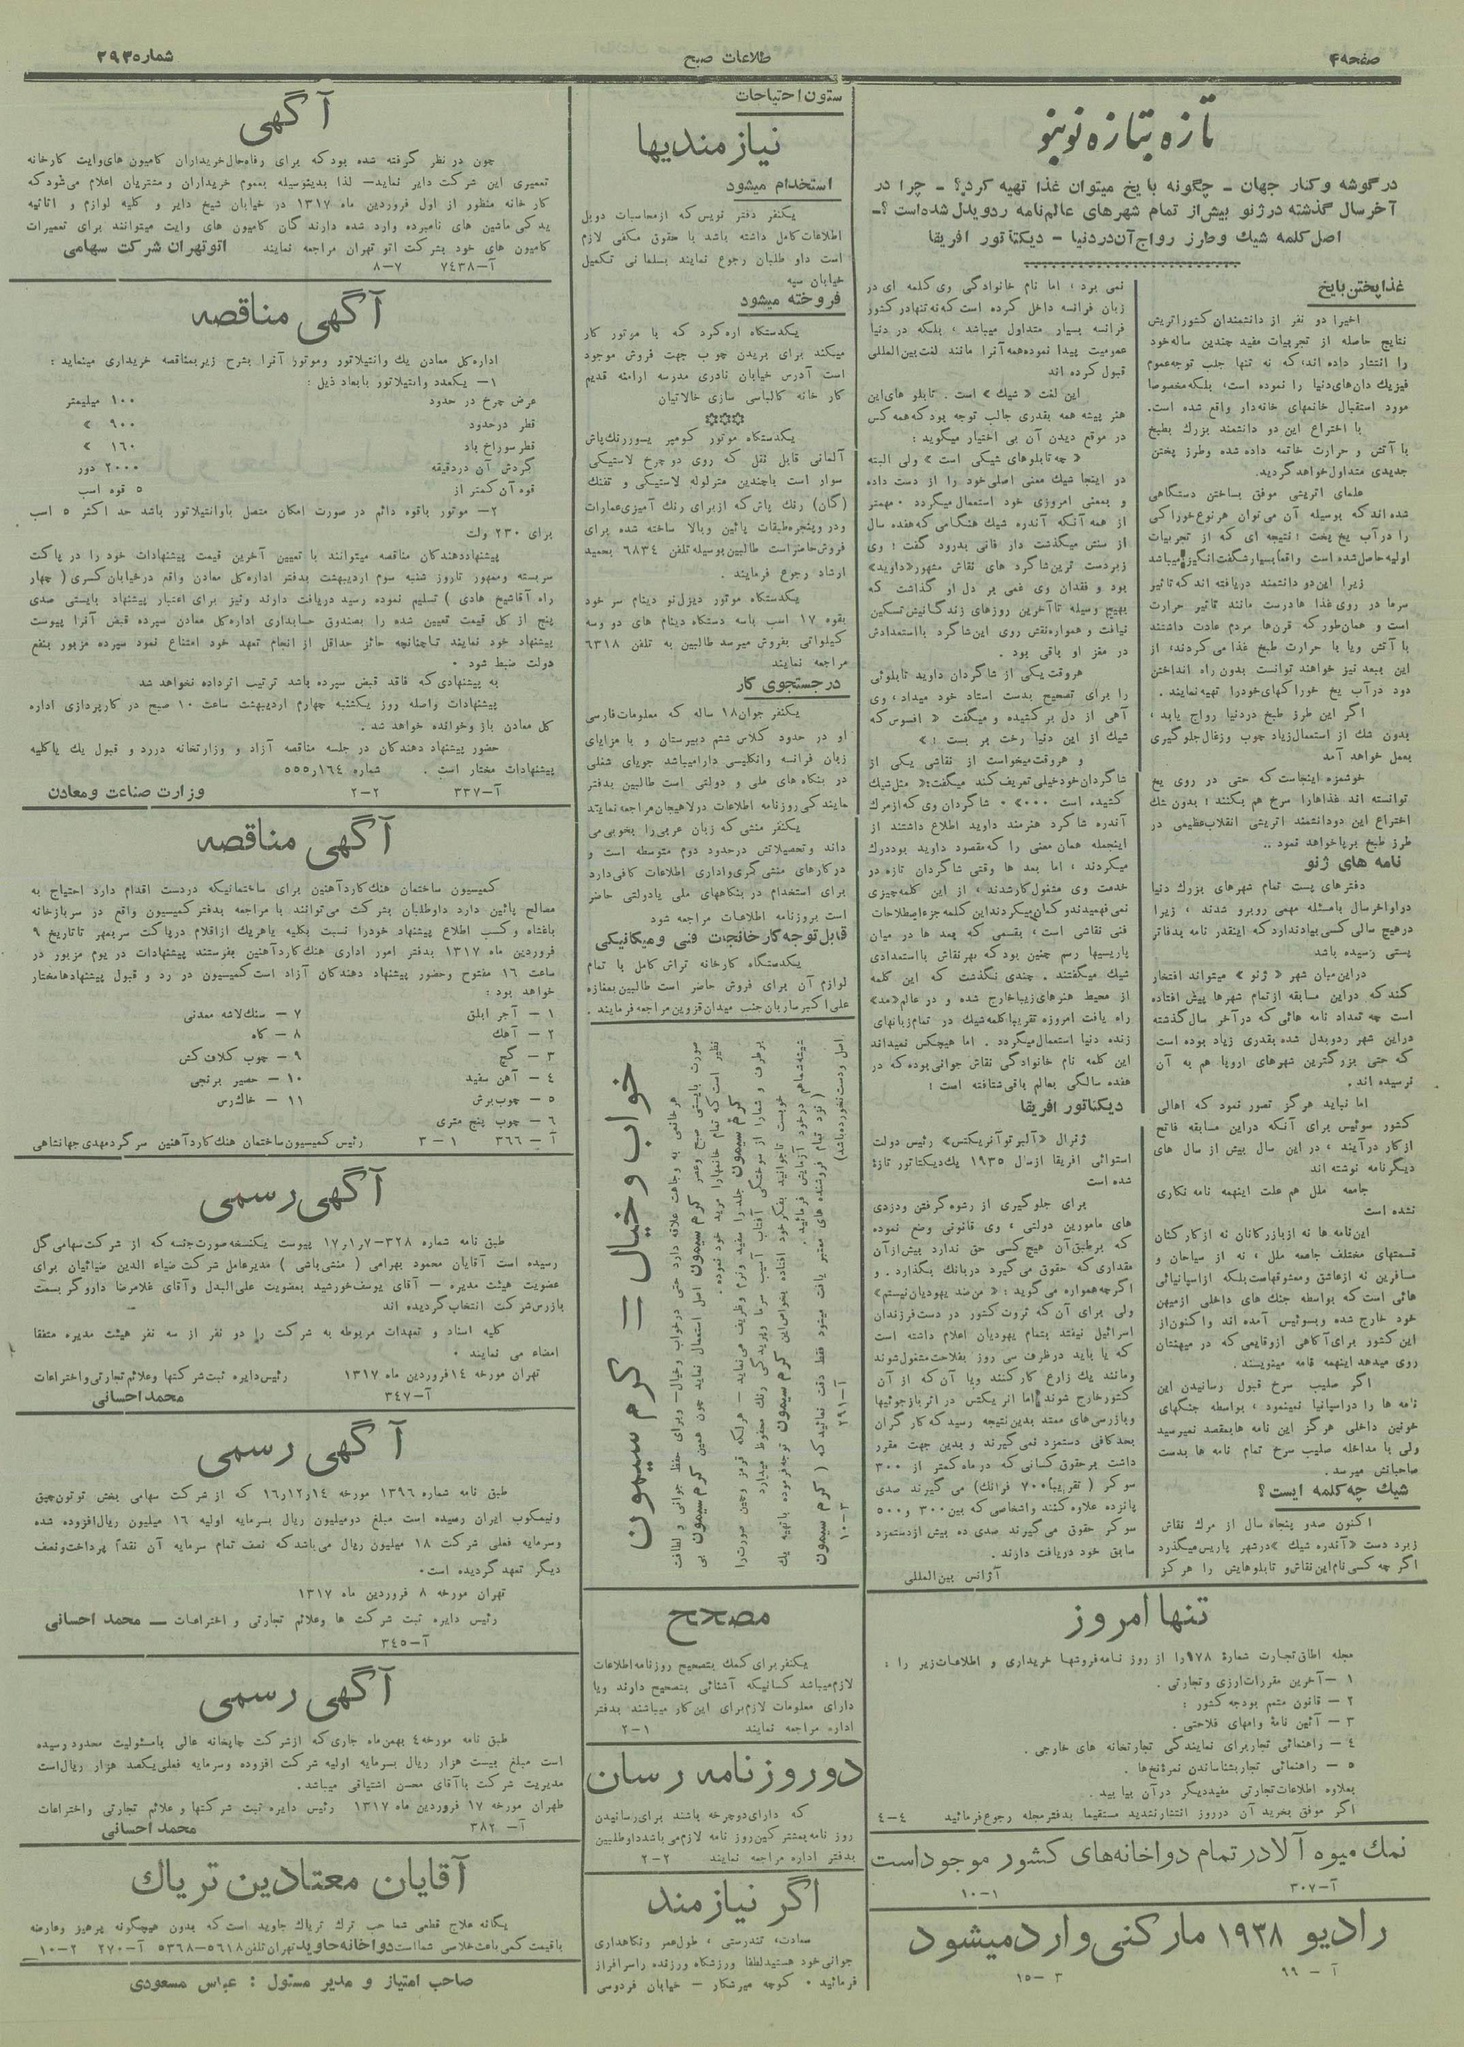 صفحه ۴
طلاعات صبح
شماره ۲۹۳۵
تازه بتازه نو بنو
در گوشه و کنار جهان ـ چگونه با یخ میتوان غذا تهیه کرد؟ ـ چرا در
آخر سال گذشته در ژنو بیش از تمام شهرهای عالم نامه رد و بدل شده است؟ـ
اصل کلمه شیك و طرز رواج آن در دنیا ـ دیکتاتور افریقا
غذا پختن با یخ
اخیرا دو نفر از دانشمندان کشور اتریش
نتایج حاصله از تجربیات مفید چندین ساله خود
را انتشار داده اند، که نه تنها جلب توجه عموم
فیزیك دان‌های دنیا را نموده است، بلکه مخصوصا
مورد استقبال خانمهای خانه‌دار واقع شده است.
با اختراع این دو دانشمند بزرك بطبخ
با آتش و حرارت خاتمه داده شده وطرز پختن
جدیدی متداول خواهد گردید.
علمای اتریشی موفق بساختن دستگاهی
شده اند که بوسیله آن می‌توان هر نوع خوراکی
را در آب یخ پخت! نتیجه ای که از تجربیات
اولیه حاصل شده است واقعا بسیار شگفت‌انگیز میباشد
زیرا این دو دانشمند دریافته اند که تاثیر
سرما در روی غذا ها درست مانند تاثیر حرارت
است و همان‌طور که قرن‌ها مردم عادت داشتند
با آتش و یا با حرارت طبخ غذا می کردند، از
این ببعد نیز خواهند توانست بدون راه انداختن
دود در آب یخ خوراکهای خود را تهیه نمایند.
اگر این طرز طبخ در دنیا رواج یابد،
بدون شك از استعمال زیاد چوب و زغال جلوگیری
بعمل خواهد آمد
خوشمزه اینجاست که حتی در روی یخ
توانسته اند غذاهارا سرخ هم بکنند! بدون شك
اختراع این دو دانشمند اتریشی انقلاب عظیمی در
طرز طبخ برپا خواهد نمود..
نامه های ژنو
دفترهای پست تمام شهرهای بزرك دنیا
در اواخر سال با مسئله مهمی روبرو شدند، زیرا
در هیچ سالی کسی بیاد ندارد که اینقدر نامه بدفاتر
پستی رسیده باشد
در این میان شهر «ژنو» میتواند افتخار
کند که در این مسابقه از تمام شهرها پیش افتاده
است چه تعداد نامه هائی که در آخر سال گذشته
در این شهر رد و بدل شده بقدری زیاد بوده است
که حتی بزرگترین شهرهای اروپا هم به آن
نرسیده اند.
اما نباید هرگز تصور نمود که اهالی
کشور سوئیس برای آنکه در این مسابقه فاتح
از کار در آیند، در این سال بیش از سال های
دیگر نامه نوشته اند
جامعه ملل هم علت اینهمه نامه نگاری
نشده است
این نامه ها نه از بازرگانان نه از کارکنان
قسمتهای مختلف جامعه ملل، نه از سیاحان و
مسافرین نه از عاشق و معشوقهاست بلکه از اسپانیائی
هائی است که بواسطه جنك های داخلی از میهن
خود خارج شده و بسوئیس آمده اند و اکنون از
این کشور برای آگاهی از وقایعی که در میهنشان
روی میدهد اینهمه نامه مینویسند.
اگر صلیب سرخ قبول رسانیدن این
نامه ها را در اسپانیا نمینمود، بواسطه جنگهای
خونین داخلی هرگز این نامه ها بمقصد نمیرسید
ولی با مداخله صلیب سرخ تمام نامه ها بدست
صاحبانش میرسد.
شیك چه کلمه ایست؟
اکنون صد و پنجاه سال از مرك نقاش
زبردست «آندره شیك» در شهر پاریس میگذرد
اگر چه کسی نام این نقاش و تابلوهایش را هرگز
نمی برد، اما نام خانوادگی وی کلمه ای در
زبان فرانسه داخل کرده است که نه تنها در کشور
فرانسه بسیار متداول میباشد، بلکه در دنیا
عمومیت پیدا نموده همه آنرا مانند لغت بین‌المللی
قبول کرده اند
این لغت «شیك» است. تابلو های این
هنر پیشه همه بقدری جالب توجه بود که همه کس
در موقع دیدن آن بی اختیار میگوید:
«چه تابلوهای شیکی است» ولی البته
در اینجا شیك معنی اصلی خود را از دست داده
و بمعنی امروزی خود استعمال میگردد. مهمتر
از همه آنکه آندره شیك هنگامی که هفده سال
از سنش میگذشت دار فانی بدرود گفت! وی
زبردست ترین شاگرد های نقاش مشهور «داوید»
بود و فقدان وی غمی بر دل او گذاشت که
بهیچ وسیله تا آخرین روزهای زندگانیش تسکین
نیافت و همواره نقش روی این شاگرد با استعدادش
در مغز او باقی بود.
هر وقت یکی از شاگردان داوید تابلوئی
را برای تصحیح بدست استاد خود میداد، وی
آهی از دل بر کشیده و میگفت «افسوس که
شیك از این دنیا رخت بر بست!»
و هر وقت میخواست از نقاشی یکی از
شاگردان خود خیلی تعریف کند میگفت: «مثل شیك
کشیده است ...». شاگردان وی که از مرك
آندره شاگرد هنرمند داوید اطلاع داشتند از
اینجمله همان معنی را که مقصود داوید بود درك
میکردند، اما بعد ها وقتی شاگردان تازه در
خدمت وی مشغول کار شدند، از این کلمه چیزی
نمی فهمیدند و گمان میکردند این کلمه جزء اصطلاحات
فنی نقاشی است، بقسمی که بعد ها در میان
پاریسیها رسم چنین بود که بهر نقاش با استعدادی
شیك میگفتند. چندی نگذشت که این کلمه
از محیط هنرهای زیبا خارج شده و در عالم «مد»
راه یافت امروزه تقریبا کلمه شیك در تمام زبانهای
زنده دنیا استعمال میگردد. اما هیچکس نمیداند
این کلمه نام خانوادگی نقاش جوانی بوده که در
هفده سالگی بعالم باقی شتافته است!
دیکتاتور افریقا
ژنرال «آلبر تو آنریکتس» رئیس دولت
استوائی افریقا از سال ۱۹۳۵ یك دیکتاتور تازهٔ
شده است
برای جلوگیری از رشوه گرفتن و دزدی
های مامورین دولتی، وی قانونی وضع نموده
که بر طبق آن هیچ کسی حق ندارد بیش از آن
مقداری که حقوق می گیرد در بانك بگذارد. و
اگر چه همواره می گوید: «من ضد یهودیان نیستم»
ولی برای آن که ثروت کشور در دست فرزندان
اسرائیل نیفتد بتمام یهودیان اعلام داشته است
که یا باید در ظرف سی روز بفلاحت مشغول شوند
و مانند یك زارع کار کنند و یا آن که از آن
کشور خارج شوند اما انریکتس در اثر بازجوئیها
و بازرسی های ممتد بدین نتیجه رسید که کارگران
بحد کافی دستمزد نمی گیرند و بدین جهت مقرر
داشت بر حقوق کسانی که در ماه کمتر از ۳۰۰
سوکر (تقریبا ۷۰۰ فرانك) می گیرند صدی
پانزده علاوه کنند و اشخاصی که بین ۳۰۰ و ۵۰۰
سوکر حقوق می گیرند صدی ده بیش از دستمزد
سابق خود دریافت دارند.
آژانس بین‌المللی
تنها امروز
مجله اطاق تجارت شمارهٔ ۱۷۸ را از روز نامه فروشها خریداری و اطلاعات زیر را:
۱ ـ آخرین مقررات ارزی و تجارتی.
۲ ـ قانون متمم بودجه کشور:
۳ ـ آئین نامهٔ وامهای فلاحتی.
۴ ـ راهنمائی تجار برای نمایندگی تجارتخانه های خارجی.
۵ ـ راهنمائی تجار بشناساندن نمرهٔ نخ‌ها.
بعلاوه اطلاعات تجارتی مفید دیگر در آن بیا بید.
اگر موفق بخرید آن در روز انتشار نشدید مستقیما بدفتر مجله رجوع فرمائید ۴-۴
نمك میوه آلا در تمام دواخانه‌های کشور موجود است
آ-۳۰۷ ۱۰-۱
رادیو ۱۹۳۸ مارکنی وارد میشود
آ - ۹۹ ۱۵-۳
ستون احتیاجات
نیازمندیها
استخدام میشود
یکنفر دفتر نویس که از محاسبات دوبل
اطلاعات کامل داشته باشد با حقوق مکفی لازم
است داو طلبان رجوع نمایند بسلمانی تکمیل
خیابان سپه
فروخته میشود
یکدستگاه اره گرد که با موتور کار
میکند برای بریدن چوب جهت فروش موجود
است آدرس خیابان نادری مدرسه ارامنه قدیم
کار خانه کالباسی سازی خالاتیان
***
یکدستگاه موتور کومپر یسور رنك پاش
آلمانی قابل نقل که روی دو چرخ لاستیکی
سوار است با چندین متر لوله لاستیکی و تفنك
(گان) رنك پاش که از برای رنك آمیزی عمارات
و در و پنجره طبقات پائین و بالا ساخته شده برای
فروش حاضر است طالبین بوسیله تلفن ۶۸۳۴ بحمید
ارشاد رجوع فرمایند.
یکدستگاه موتور دیزل نو دینام سر خود
بقوه ۱۷ اسب باسه دستگاه دینام های دو وسه
کیلواتی بفروش میرسد طالبین به تلفن ۶۳۱۸
مراجعه نمایند
در جستجوی کار
یکنفر جوان ۱۸ ساله که معلومات فارسی
او در حدود کلاس ششم دبیرستان و با مزایای
زبان فرانسه و انگلیسی دارا میباشد جویای شغلی
در بنگاه های ملی و دولتی است طالبین بدفتر
نمایندگی روزنامه اطلاعات در لاهیجان مراجعه نمایند
یکنفر منشی که زبان عربی را بخوبی می
داند و تحصیلاتش در حدود دوم متوسطه است و
در کارهای منشی گری و اداری اطلاعات کافی دارد
برای استخدام در بنگاههای ملی یا دولتی حاضر
است بروزنامه اطلاعات مراجعه شود
قابل توجه کارخانجات فنی و میکانیکی
یکدستگاه کارخانه تراش کامل با تمام
لوازم آن برای فروش حاضر است طالبین بمغازه
علی اکبر ساربان جنب میدان قزوین مراجعه فرمایند.
خواب و خیال = کرم سیمون
هر خانمی به وجاهت علاقه دارد حتی در خواب و خیال ـ و برای حفظ جوانی و لطافت
صورت بایستی صبح و عصر کرم سیمون اصل استعمال نماید چون همین کرم سیمون بی
نظیر است که تمام خانمهارا مرید خود نموده.
کرم سیمون جلد را سفید و نرم و ظریف می‌نماید ـ هر لکه قرمز و چین صورت را
برطرف و شمارا از سوختگی آفتاب آسیب سرما و پریدگی رنك محفوظ میدارد
خوبست تا جوانید بفکر خود افتاده بخواص این کرم سیمون توجه فرموده با تهیه یك
شیشه شما هم در خود آزمایش فرمائید.
(نزد تمام فروشنده های معتبر یافت میشود فقط دقت نمائید که (کرم سیمون
اصل و دست نخورده باشد) آ-۲۹۱ ۱۰-۳
مصحح
یکنفر برای کمك بتصحیح روزنامه اطلاعات
لازم میباشد کسانیکه آشنائی بتصحیح دارند و یا
دارای معلومات لازم برای این کار میباشند بدفتر
اداره مراجعه نمایند ۲-۱
دو روزنامه رسان
که دارای دوچرخه باشند برای رسانیدن
روز نامه بمشتر کین روز نامه لازم می باشد داوطلبین
بدفتر اداره مراجعه نمایند ۲-۲
اگر نیازمند
سعادت، تندرستی، طول عمر و نگاهداری
جوانی خود هستید لطفا ورزشگاه ورزنده را سر افراز
فرمائید. کوچه میرشکار ـ خیابان فردوسی
آگهی
چون در نظر گرفته شده بود که برای رفاه حال خریداران کامیون های وایت کارخانه
تعمیری این شرکت دایر نماید ـ لذا بدینوسیله بعموم خریداران و مشتریان اعلام می‌شود که
کار خانه منظور از اول فروردین ماه ۱۳۱۷ در خیابان شیخ دایر و کلیه لوازم و اثاثیه
یدکی ماشین های نامبرده وارد شده دارندگان کامیون های وایت میتوانند برای تعمیرات
کامیون های خود بشرکت اتو تهران مراجعه نمایند اتوتهران شرکت سهامی
آ-۷۴۳۸ ۸-۷
آگهی مناقصه
اداره کل معادن یك وانتیلاتور و موتور آنرا بشرح زیر بمناقصه خریداری مینماید:
۱ ـ یکعدد وانتیلاتور بابعاد ذیل:
عرض چرخ در حدود ۱۰۰ میلیمتر
قطر در حدود ۹۰۰ »
قطر سوراخ باد ۱۶۰ »
گردش آن در دقیقه ۲۰۰۰ دور
قوه آن کمتر از ۵ قوه اسب
۲ ـ موتور باقوه دائم در صورت امکان متصل باوانتیلاتور باشد حد اکثر ۵ اسب
برای ۲۳۰ ولت
پیشنهاد دهندگان مناقصه میتوانند با تعیین آخرین قیمت پیشنهادات خود را در پاکت
سربسته و ممهور تا روز شنبه سوم اردیبهشت بدفتر اداره کل معادن واقع در خیابان کسری (چهار
راه آقا شیخ هادی) تسلیم نموده رسید دریافت دارند و نیز برای اعتبار پیشنهاد بایستی صدی
پنج از کل قیمت تعیین شده را بصندوق حسابداری اداره کل معادن سپرده قبض آنرا پیوست
پیشنهاد خود نمایند تا چنانچه حائز حداقل از انجام تعهد خود امتناع نمود سپرده مزبور بنفع
دولت ضبط شود.
به پیشنهادی که فاقد قبض سپرده باشد ترتیب اثر داده نخواهد شد
پیشنهادات واصله روز یکشنبه چهارم اردیبهشت ساعت ۱۰ صبح در کارپردازی اداره
کل معادن باز و خوانده خواهد شد.
حضور پیشنهاد دهندگان در جلسه مناقصه آزاد و وزارتخانه در رد و قبول یك یا کلیه
پیشنهادات مختار است. شماره ۵۵۵٫۱۶۴
آ-۳۳۷ ۲-۲ وزارت صناعت و معادن
آگهی مناقصه
کمیسیون ساختمان هنك کارد آهنین برای ساختمانیکه در دست اقدام دارد احتیاج به
مصالح پائین دارد داوطلبان بشرکت می‌توانند با مراجعه بدفتر کمیسیون واقع در سربازخانه
باغشاه و کسب اطلاع پیشنهاد خود را نسبت بکلیه یا هر یك از اقلام در پاکت سر بمهر تا تاریخ ۹
فروردین ماه ۱۳۱۷ بدفتر امور اداری هنك کارد آهنین بفرستند پیشنهادات در یوم مزبور در
ساعت ۱۶ مفتوح و حضور پیشنهاد دهندگان آزاد است کمیسیون در رد و قبول پیشنهادها مختار
خواهد بود:
۱ ـ آجر ابلق ۷ ـ سنك لاشه معدنی
۲ ـ آهك ۸ ـ کاه
۳ ـ گچ ۹ ـ چوب کلاف کش
۴ ـ آهن سفید ۱۰ ـ حصیر برنجی
۵ ـ چوب برش ۱۱ ـ خاك رس
۶ ـ چوب پنج متری
آ - ۳۶۶ ۳-۱ رئیس کمیسیون ساختمان هنك کارد آهنین سرگرد مهدی جهانشاهی
آگهی رسمی
طبق نامه شماره ۳۲۸-۱۷٫۱٫۷ پیوست یکنسخه صورت جلسه که از شرکت سهامی گل
رسیده است آقایان محمود بهرامی (منشی باشی) مدیر عامل شرکت ضیاء الدین ضیائیان برای
عضویت هیئت مدیره ـ آقای یوسف خورشید بعضویت علی البدل و آقای غلامرضا داروگر بسمت
بازرس شرکت انتخاب گردیده اند
کلیه اسناد و تعهدات مربوطه به شرکت را دو نفر از سه نفر هیئت مدیره متفقا
امضاء می نمایند.
تهران مورخه ۱۴ فروردین ماه ۱۳۱۷ رئیس دایره ثبت شرکتها و علائم تجارتی و اختراعات
آ-۳۴۷ محمد احسانی
آگهی رسمی
طبق نامه شماره ۱۳۹۶ مورخه ۱۶٫۱۲٫۱۴ که از شرکت سهامی پخش توتون چپق
و تیمکوب ایران رسیده است مبلغ دو میلیون ریال بسرمایه اولیه ۱۶ میلیون ریال افزوده شده
و سرمایه فعلی شرکت ۱۸ میلیون ریال می‌باشد که نصف تمام سرمایه آن نقداً پرداخت و نصف
دیگر تعهد گردیده است.
تهران مورخه ۸ فروردین ماه ۱۳۱۷
رئیس دایره ثبت شرکت ها و علائم تجارتی و اختراعات ـ محمد احسانی
آ-۳۴۵
آگهی رسمی
طبق نامه مورخه ۴ بهمن ماه جاری که از شرکت چاپخانه عالی با مسئولیت محدود رسیده
است مبلغ بیست هزار ریال بسرمایه اولیه شرکت افزوده و سرمایه فعلی یکصد هزار ریال است
مدیریت شرکت با آقای محسن اشتیاقی میباشد.
طهران مورخه ۱۷ فروردین ماه ۱۳۱۷ رئیس دایره ثبت شرکتها و علائم تجارتی و اختراعات
آ-۳۸۲ محمد احسانی
آقایان معتادین تریاك
یگانه علاج قطعی شما حب ترك تریاك جاوید است که بدون هیچگونه پرهیز و عارضه
با قیمت کمی باعث خلاصی شما است دواخانه جاوید تهران تلفن ۵۶۱۸-۵۳۶۸ آ-۲۷۰ ۱۰-۲
صاحب امتیاز و مدیر مسئول: عباس مسعودی